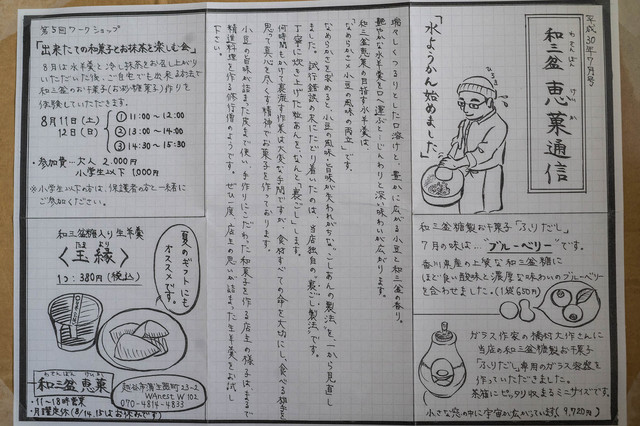 平成30年7月号
わさんぼん けいか
和三盆 恵菓通信
「水ようかん始めました」
瑞々しくつるりとした口溶けと、豊かに広がる小豆と和三盆の香り。
艶やかな水羊羹を口へ運ぶと…じんわりと深い味わいが広がります。
和三盆恵菓の目指す水羊羹は、
「なめらかさ×小豆の風味の両立」です。
なめらかさを求めると、小豆の風味・旨味が失われがちな“こしあんの製法”を一から見直し
ました。試行錯誤の末にたどり着いたのは、当店独自の“裏ごし製法”です。
丁寧に炊き上げた粒あんを、なんと「裏ごし」します。
何時間もかけて裏漉す作業は大変な手間ですが、食材すべての命を大切にし、食べる相手を
思って真心を尽くす精神でお菓子を作っております。
小豆の旨味が詰まった皮まで使い、手作りにこだわったお菓子を作る店主の様子はまるで
精進料理を作る修行僧のようです。ぜひ一度、店主の思いが詰まった生羊羹をお試し
下さい。
第5回ワークショップ
「出来たての和菓子とお抹茶を楽しむ会」
8月は水羊羹と冷し抹茶をお召し上がり
いただいた後、ご自宅でも出来るお干菓
和三盆のお干菓子(お砂糖菓子)作りを
体験していただきます。
8月11日(土)
12日(日)
① 11:00〜12:00
② 13:00〜14:00
③ 14:30〜15:30
・参加費…大人 2,000円
小学生以下 1,000円
※小学生以下の方は、保護者の方と一緒に
ご参加ください。
和三盆糖製お干菓子「ふりだし」
7月の味は…“ブルーベリー”です。
香川県産の上質な和三盆糖に
ほど良い酸味と濃厚な味わいのブルーベリー
を合わせました。(1袋650円)
ガラス作家の橋村大作さんに
当店の和三盆糖製お干菓子
「ふりだし」専用のガラス容器を
作っていただきました。
茶箱にピッタリ収まるミニサイズです。
小さな窓の中に宇宙が広がっています(9,720円)
和三盆糖入り生羊羹
〈玉縁〉
たまより
1つ:380円(税込)
夏のギフトにも
オススメです。
わさんぼん けいか
和三盆 恵菓
越谷市蒲生茜町23-2
WAnest W 102
070-4814-4833
・11〜18時営業
・月曜定休(8/14,15はお休みです)